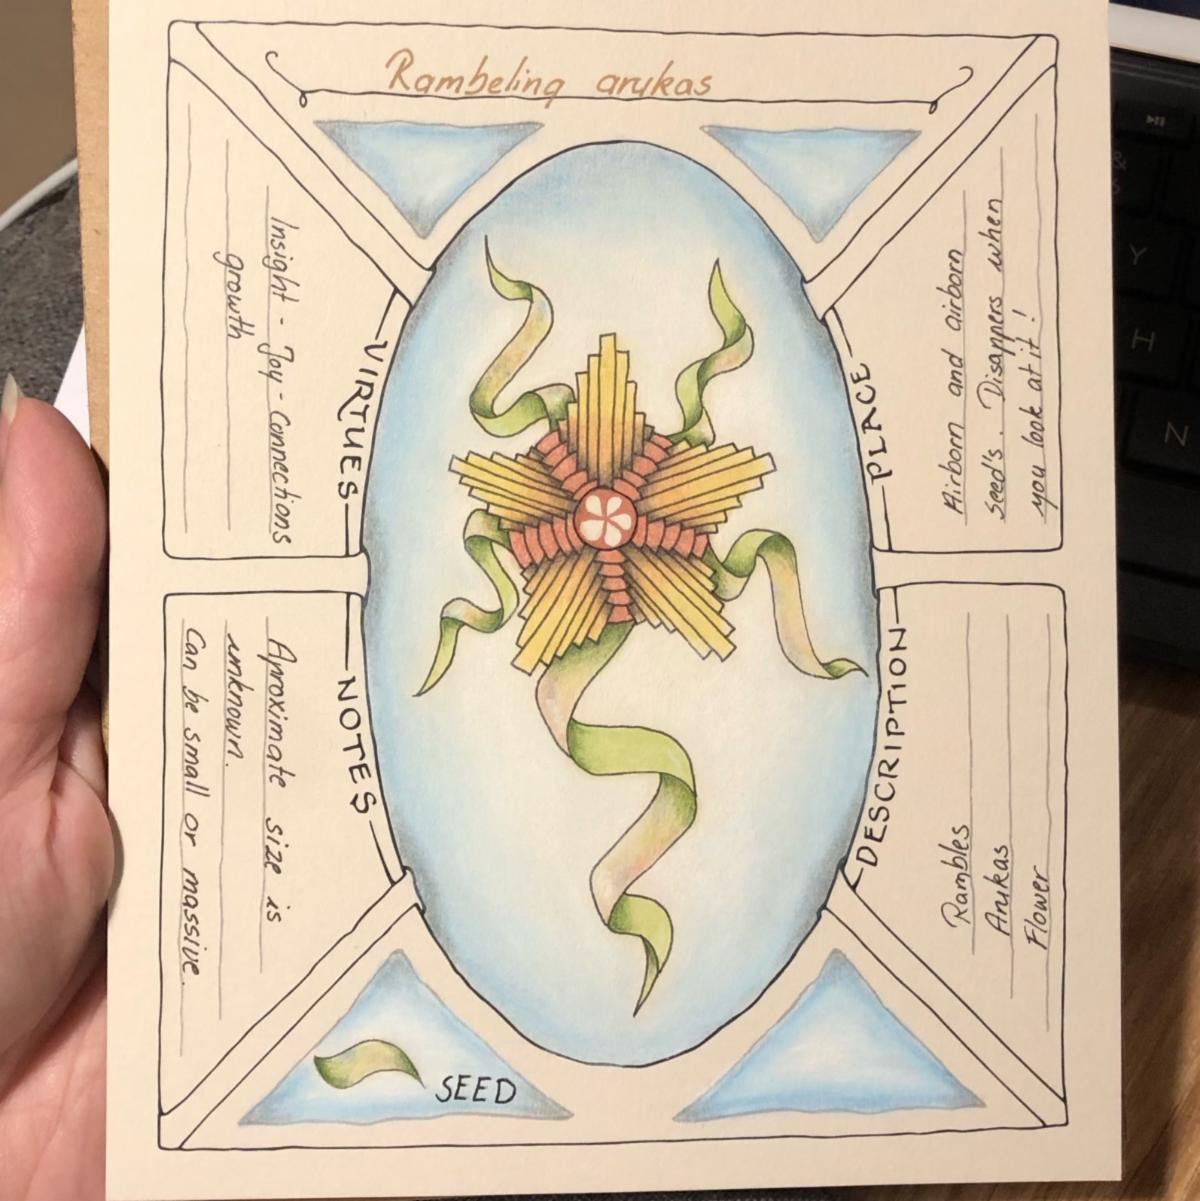 Rambeling arukas
VIRTUES
Insight - Joy - Connections
growth
PLACE
Airborn and airborn
seed's. Disappers when
you look at it!
NOTES
Aproximate size is
unknown.
Can be small or massive.
DESCRIPTION
Rambles
Arukas
Flower
SEED
&
Y
H
N